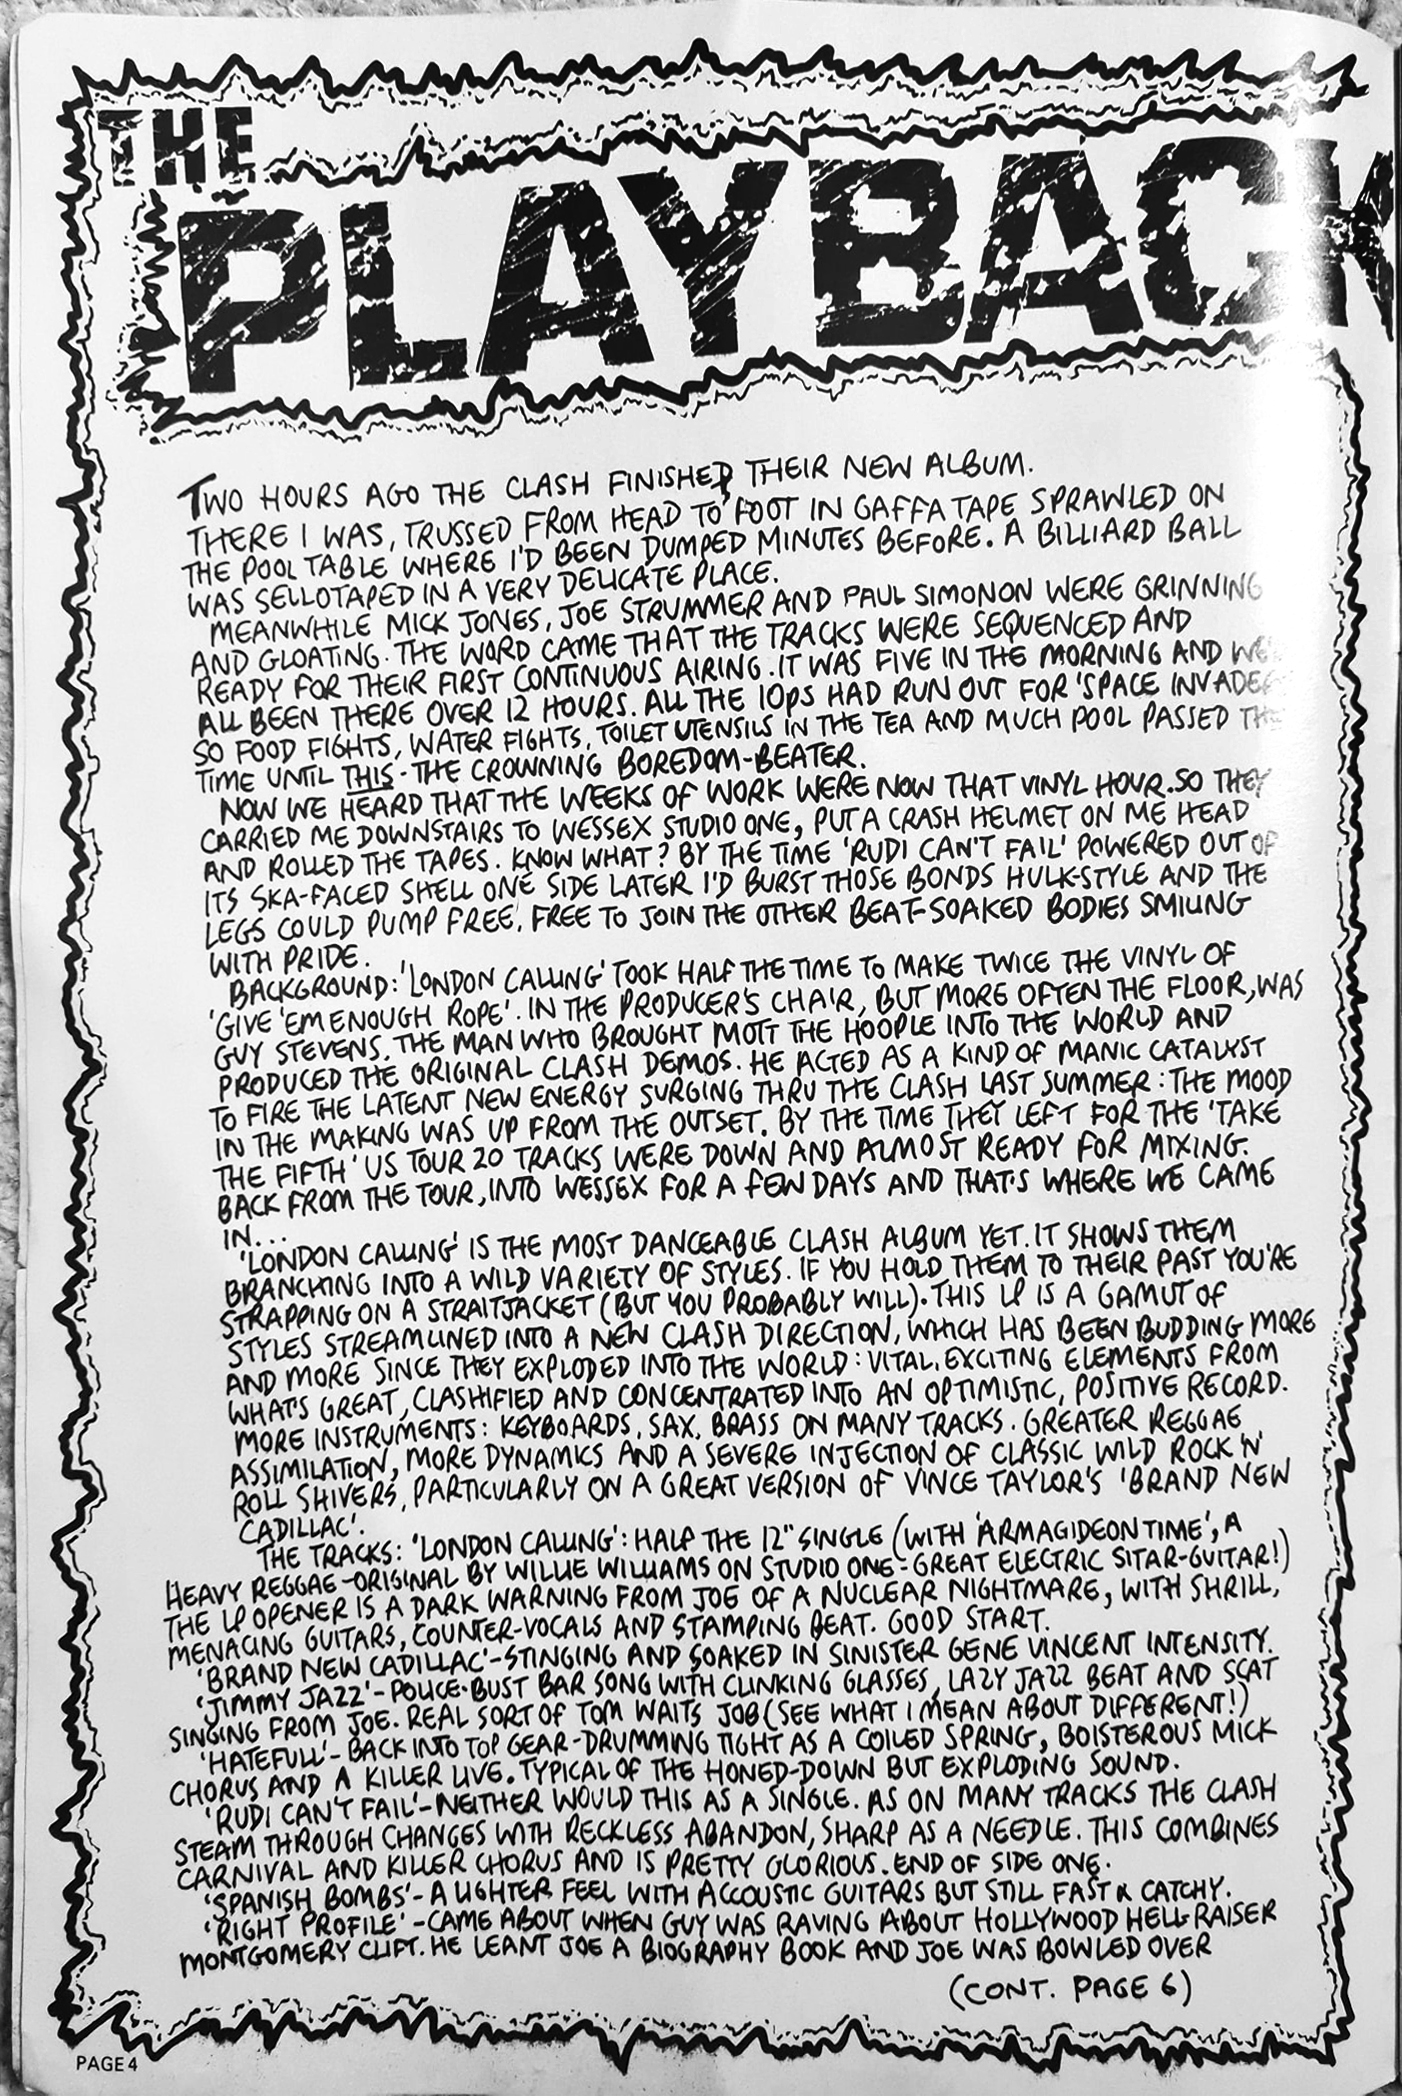 THE
PLAYBACK
TWO HOURS AGO THE CLASH FINISHED THEIR NEW ALBUM.
THERE I WAS, TRUSSED FROM HEAD TO FOOT IN GAFFA TAPE SPRAWLED ON
THE POOL TABLE WHERE I'D BEEN DUMPED MINUTES BEFORE. A BILLIARD BALL
WAS SELLOTAPED IN A VERY DELICATE PLACE.
MEANWHILE MICK JONES, JOE STRUMMER AND PAUL SIMONON WERE GRINNING
AND GLOATING. THE WORD CAME THAT THE TRACKS WERE SEQUENCED AND
READY FOR THEIR FIRST CONTINUOUS AIRING. IT WAS FIVE IN THE MORNING AND
ALL BEEN THERE OVER 12 HOURS. ALL THE 10PS HAD RUN OUT FOR 'SPACE
SO FOOD FIGHTS, WATER FIGHTS, TOILET UTENSILS IN THE TEA AND MUCH POOL PASSED THE
TIME UNTIL THIS - THE CROWNING BOREDOM-BEATER.
NOW WE HEARD THAT THE WEEKS OF WORK WERE NOW THAT VINYL HOUR. SO THEY
CARRIED ME DOWNSTAIRS TO WESSEX STUDIO ONE, PUT A CRASH HELMET ON ME HEAD
AND ROLLED THE TAPES. KNOW WHAT? BY THE TIME 'RUDI CAN'T FAIL' POWERED OUT OF
ITS SKA-FACED SHELL ONE SIDE LATER I'D BURST THOSE BONDS HULK-STYLE AND THE
LEGS COULD PUMP FREE, FREE TO JOIN THE OTHER BEAT-SOAKED BODIES SMILING
WITH PRIDE.
BACKGROUND: 'LONDON CALLING' TOOK HALF THE TIME TO MAKE TWICE THE VINYL OF
'GIVE 'EM ENOUGH ROPE'. IN THE PRODUCER'S CHAIR, BUT MORE OFTEN THE FLOOR, WAS
GUY STEVENS, THE MAN WHO BROUGHT MOTT THE HOOPLE INTO THE WORLD AND
PRODUCED THE ORIGINAL CLASH DEMOS. HE ACTED AS A KIND OF MANIC CATALYST
TO FIRE THE LATENT NEW ENERGY SURGING THRU THE CLASH LAST SUMMER: THE MOOD
IN THE MAKING WAS UP FROM THE OUTSET. BY THE TIME THEY LEFT FOR THE 'TAKE
THE FIFTH' US TOUR 20 TRACKS WERE DOWN AND ALMOST READY FOR MIXING.
BACK FROM THE TOUR, INTO WESSEX FOR A FEW DAYS AND THAT'S WHERE WE CAME
IN...
'LONDON CALLING' IS THE MOST DANCEABLE CLASH ALBUM YET. IT SHOWS THEM
BRANCHING INTO A WILD VARIETY OF STYLES. IF YOU HOLD THEM TO THEIR PAST YOU'RE
STRAPPING ON A STRAITJACKET (BUT YOU PROBABLY WILL). THIS LP IS A GAMUT OF
STYLES STREAMLINED INTO A NEW CLASH DIRECTION, WHICH HAS BEEN BUDDING MORE
AND MORE SINCE THEY EXPLODED INTO THE WORLD: VITAL, EXCITING ELEMENTS FROM
WHAT'S GREAT, CLASHIFIED AND CONCENTRATED INTO AN OPTIMISTIC, POSITIVE RECORD.
MORE INSTRUMENTS: KEYBOARDS, SAX, BRASS ON MANY TRACKS. GREATER REGGAE
ASSIMILATION, MORE DYNAMICS AND A SEVERE INJECTION OF CLASSIC WILD ROCK 'N'
ROLL SHIVERS, PARTICULARLY ON A GREAT VERSION OF VINCE TAYLOR'S 'BRAND NEW
CADILLAC'.
THE TRACKS: 'LONDON CALLING': HALF THE 12" SINGLE (WITH 'ARMAGIDEON TIME', A
HEAVY REGGAE-ORIGINAL BY WILLIE WILLIAMS ON STUDIO ONE-GREAT ELECTRIC SITAR-GUITAR!)
THE LP OPENER IS A DARK WARNING FROM JOE OF A NUCLEAR NIGHTMARE, WITH SHRILL,
MENACING GUITARS, COUNTER-VOCALS AND STAMPING BEAT. GOOD START.
'BRAND NEW CADILLAC'-STINGING AND SOAKED IN SINISTER GENE VINCENT INTENSITY.
'JIMMY JAZZ'-POLICE-BUST BAR SONG WITH CLINKING GLASSES, LAZY JAZZ BEAT AND SCAT
SINGING FROM JOE. REAL SORT OF TOM WAITS JOB (SEE WHAT I MEAN ABOUT DIFFERENT!)
'HATEFULL'-BACK INTO TOP GEAR-DRUMMING TIGHT AS A COILED SPRING, BOISTEROUS MICK
CHORUS AND A KILLER LIVE. TYPICAL OF THE HONED-DOWN BUT EXPLODING SOUND.
'RUDI CAN'T FAIL'-NEITHER WOULD THIS AS A SINGLE. AS ON MANY TRACKS THE CLASH
STEAM THROUGH CHANGES WITH RECKLESS ABANDON, SHARP AS A NEEDLE. THIS COMBINES
CARNIVAL AND KILLER CHORUS AND IS PRETTY GLORIOUS. END OF SIDE ONE.
'SPANISH BOMBS'-A LIGHTER FEEL WITH ACCOUSTIC GUITARS BUT STILL FAST & CATCHY.
'RIGHT PROFILE'-CAME ABOUT WHEN GUY WAS RAVING ABOUT HOLLYWOOD HELL-RAISER
MONTGOMERY CLIFT. HE LEANT JOE A BIOGRAPHY BOOK AND JOE WAS BOWLED OVER
(CONT. PAGE 6)
PAGE 4